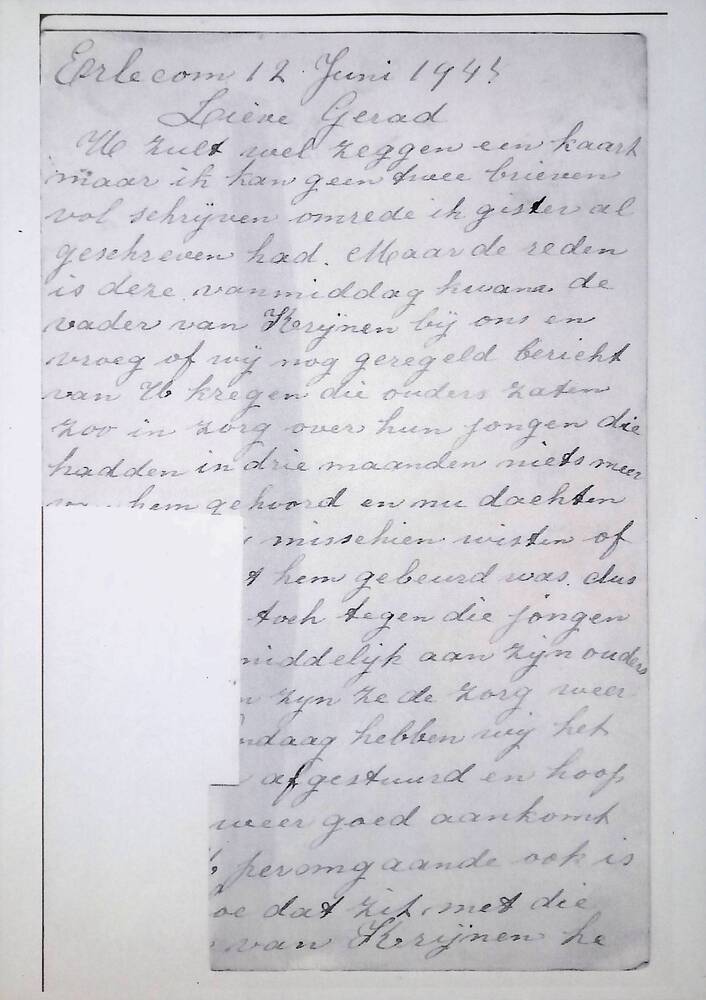 Erlecom 12 Juni 194
Lieve Gerad
U zult wel zeggen een kaart
maar ik kan geen twee brieven
vol schrijven omrede ik gister al
geschreven had. Maar de reden
is deze vanmiddag kwam de
vader van Krijnen bij ons en
vroeg of wij nog geregeld bericht
van U kregen die ouders zaten
zoo in zorg over hun jongen die
hadden in drie maanden niets meer
hem gehoord en nu dachten
misschien wisten of
t hem gebeurd was. dus
toch tegen die jongen
middelijk aan zijn ouders
zijn ze de zorg weer
ndaag hebben wij het
afgestuurd en hoop
weer goed aankomt
per omgaande ook is
oe dat zit met die
van Krijnen he